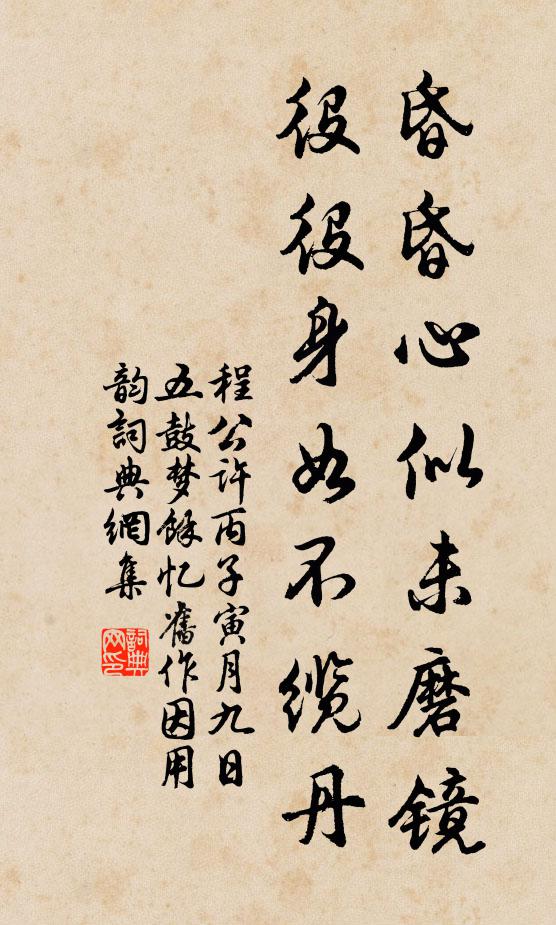 昏昏心似未磨镜
役役身如不缆丹
程公许丙子寅月九日
五鼓梦馀忆旧作因用
韵词典网集
词典网印